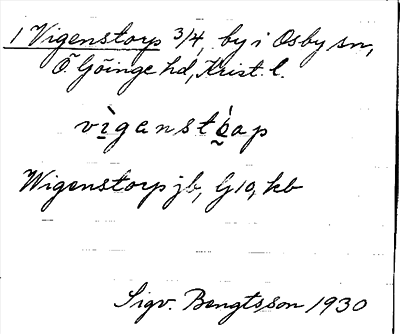 1 Vigenstorp 3/4, by i Osby sn,
Ö. Göinge hd, Krist. l.
Wigenstorp jb, G10, kb
Sigv. Bengtsson 1930